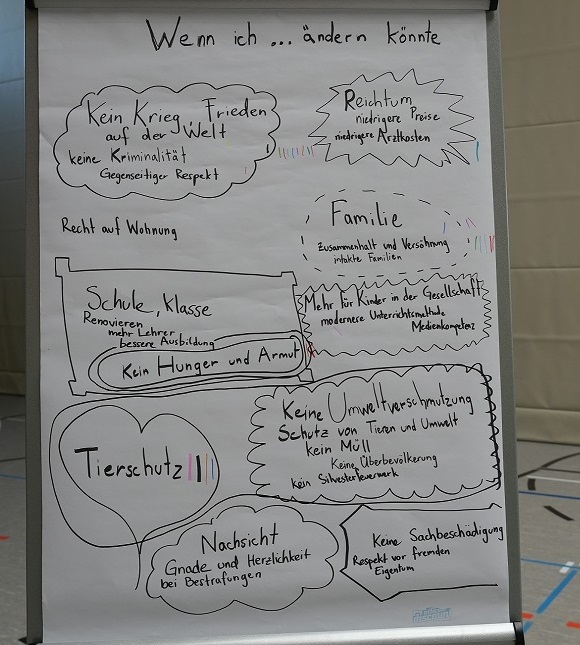 Wenn ich ... ändern könnte
Kein Krieg, Frieden
auf der Welt
keine Kriminalität
Gegenseitiger Respekt
Reichtum
niedrigere Preise
niedrigere Arztkosten
Recht auf Wohnung
Familie
Zusammenhalt und Versöhnung
intakte Familien
Schule, Klasse
Renovieren
mehr Lehrer
bessere Ausbildung
Kein Hunger und Armut
Mehr für Kinder in der Gesellschaft
modernere Unterrichtsmethode
Medienkompetenz
Tierschutz
Keine Umweltverschmutzung
Schutz von Tieren und Umwelt
kein Müll
Keine Überbevölkerung
kein Silvesterfeuerwerk
Nachsicht
Gnade und Herzlichkeit
bei Bestrafungen
Keine Sachbeschädigung
Respekt vor fremden
Eigentum